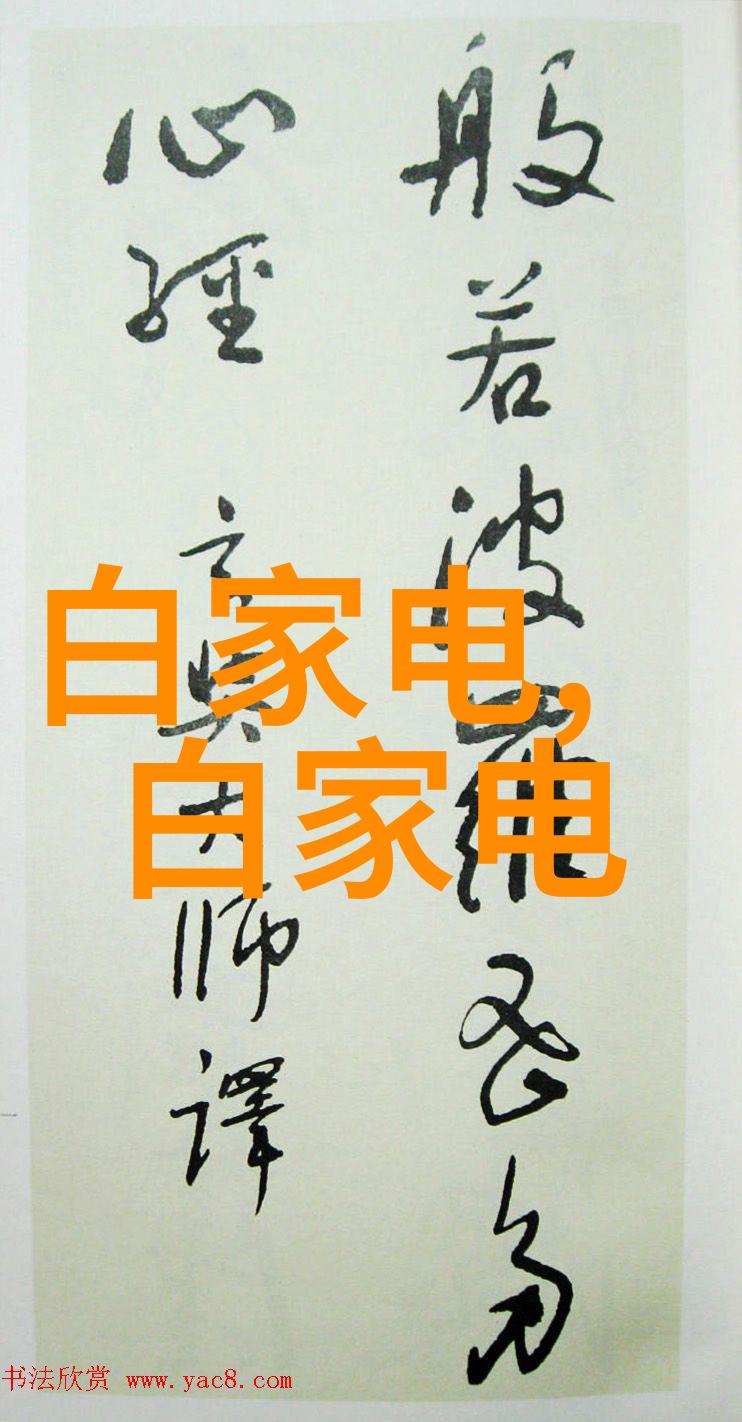 般若波羅密多
心經 玄奘大師譯
白家电,
白家电
书法欣赏 www.yac8.com